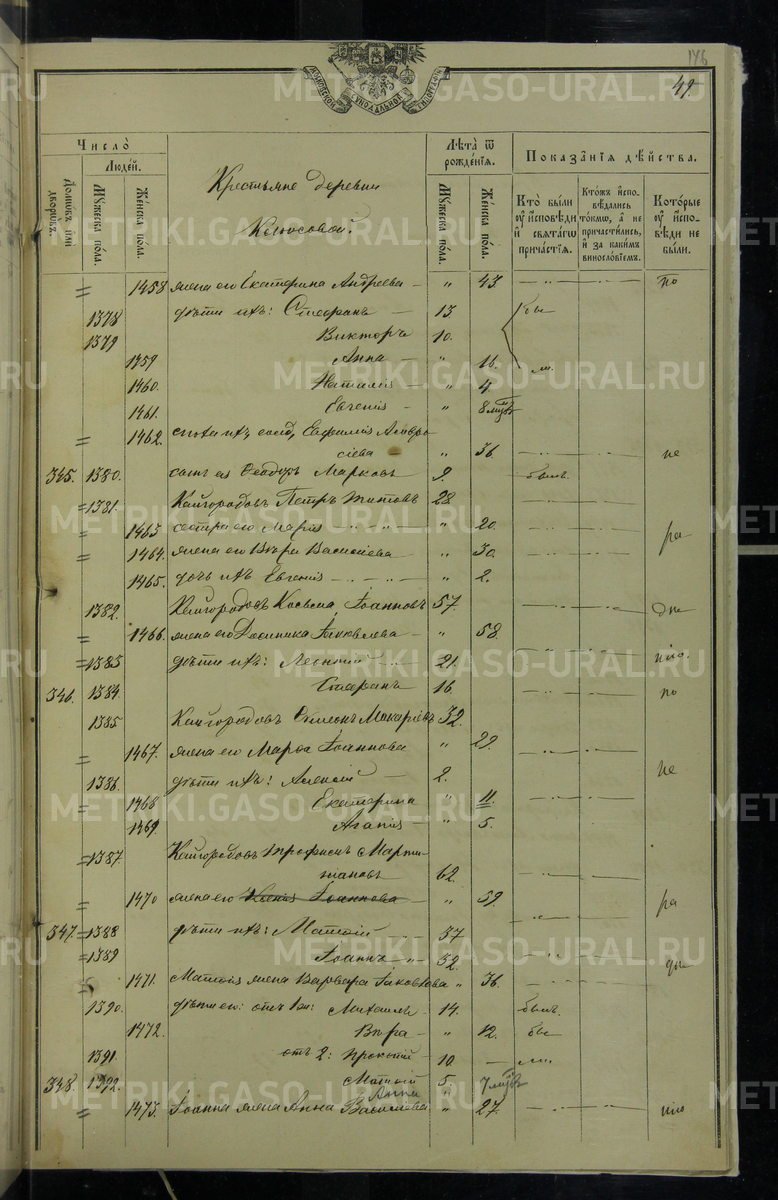 146
49.
Число̀
Людей.
Домовъ или дворовъ.
Мужеска пола.
Женска пола.
Крестьяне деревни
Колюсовой.
Лѣта ѿ рожденія.
Мужеска пола.
Женска пола.
Показанія дѣйства.
Кто были у исповѣди и святаго причастія.
Кто жъ исповѣдались токмо, а не причастились, и за какимъ винословіемъ.
Которые у исповѣди не были.
1458 жена его Екатерина Андреева — " 43 по
1378 дѣти ихъ: Стефанъ — 13 бы
1379 Викторъ 10.
1459 Анна — " 16. ли.
1460. Наталія — " 4
1461. Евгенія — " 8 мцвъ
1462. Евфимія Амвро
сіева " 36 не
345. 1380. сынъ ея Ѳеодоръ Марковъ 9. былъ.
1381. Кайгородовъ Петръ Титовъ 28
1463 сестра его Марія " 20. ра
1464. жена его Вѣра Васильева — " 30
1465. дочь ихъ Евгенія " 2.
1382. Кайгородовъ Косьма Іоанновъ 57. ді
1466. жена его Домника Іаковлева — " 58.
1383 дѣти ихъ: Леонтій 21.
346. 1384. Стефанъ 16. по
1385 Кайгородовъ Симеонъ Макаріевъ 32.
1467. жена его Марѳа Іоаннова " 29.
1386. дѣти ихъ: Алексій — 2. не
1468 Екатерина " 11.
1469. Агапія — " 5.
1387 Кайгородовъ Трофимъ Марти-
ніановъ 62.
1470 жена его Ксенія Іоаннова — " 59. ра
347. 1388 дѣти ихъ: Матѳій 37
1389 Іоаннъ 32.
1471. Матѳія жена Варвара Іаковлева " 36.
1390. дѣти его: отъ 1й: Михаилъ — 14. былъ.
1472. Вѣра — " 12. бы
1391. отъ 2: Прокопій — 10. — ли
348. 1392. Матѳій 5. 7 мцвъ
Анна "
1473. Іоанна жена Анна Васильева " 27.
METRIKI.GASO-URAL.RU